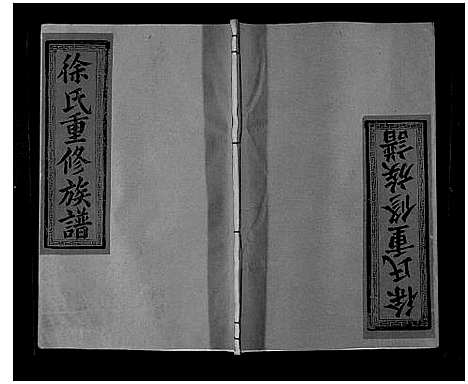 徐氏重修族譜
徐氏重修族譜